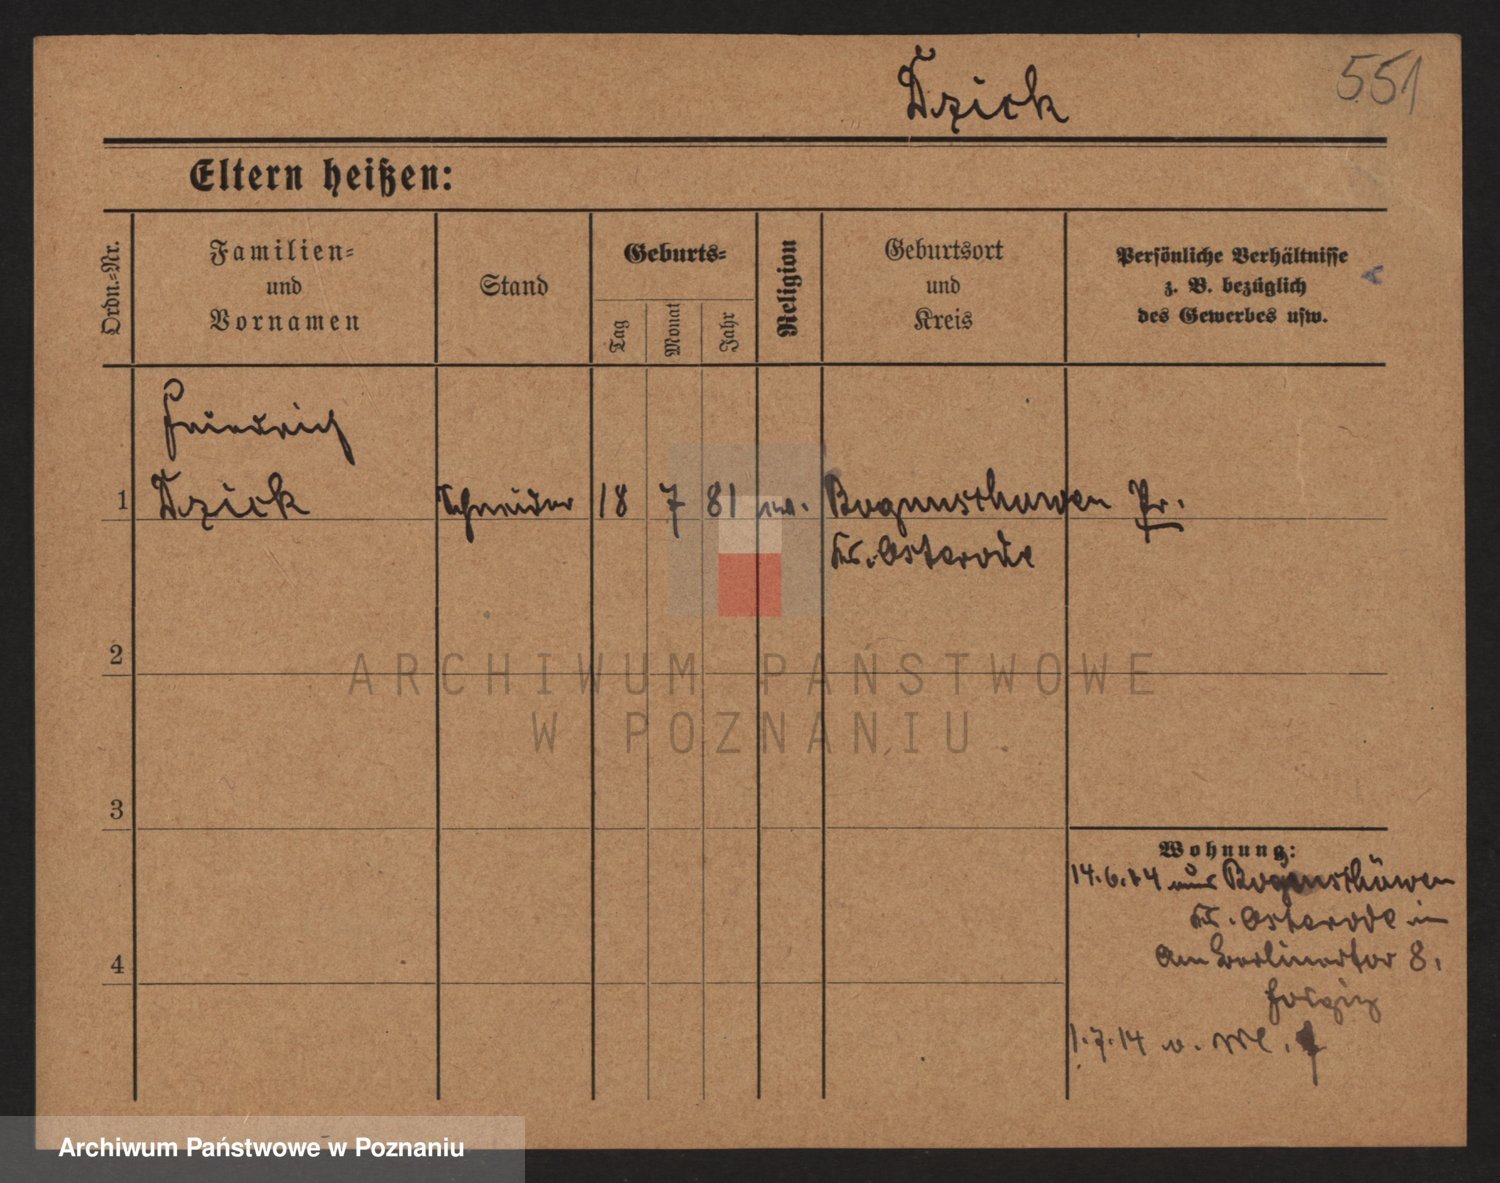 551
Dzick
Eltern heißen:
Ordn.-Nr.
Familien-
und
Vornamen
Stand
Geburts-
Tag
Monat
Jahr
Religion
Geburtsort
und
Kreis
Persönliche Verhältnisse
z. B. bezüglich
des Gewerbes usw.
Friedrich
1 Dzick Schneider 18 7 81 ev. Pr.
Kr. Osterode
2
3
4
Wohnung:
14.6.14 aus
Kr. Osterode in
Am Berlinertor 8.
1.7.14 v.
ARCHIWUM PAŃSTWOWE
W POZNANIU
Archiwum Państwowe w Poznaniu